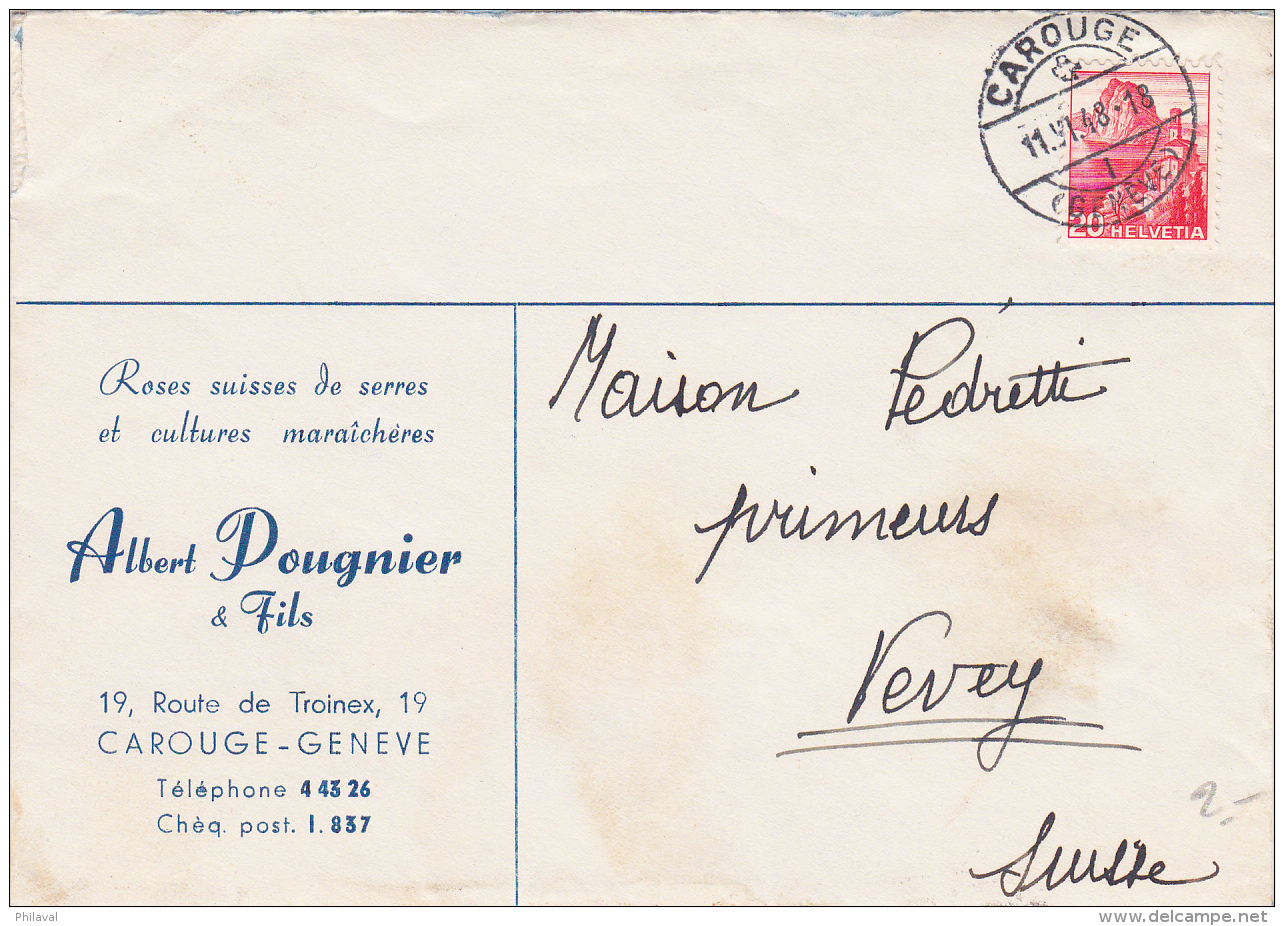 CAROUGE
11.VI.48-18
1
(GENEVE)
20 HELVETIA
Roses suisses de serres
et cultures maraîchères
Albert Dougnier
& Fils
19, Route de Troinex, 19
CAROUGE-GENEVE
Téléphone 4 43 26
Chèq. post. I. 837
Maison Pédretti
primeurs
Vevey
Suisse
2.-
Philaval
www.delcampe.net